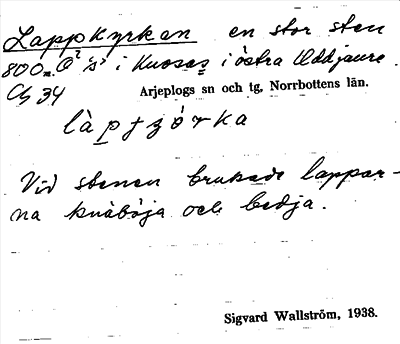 Lappkyrkan en stor sten
800 m. O²'s' i Kuosas i östra Uddjaure.
Ch 34
Arjeplogs sn och tg, Norrbottens län.
làptʒórka
Vid stenen brukade lappar-
na knäböja och bedja.
Sigvard Wallström, 1938.